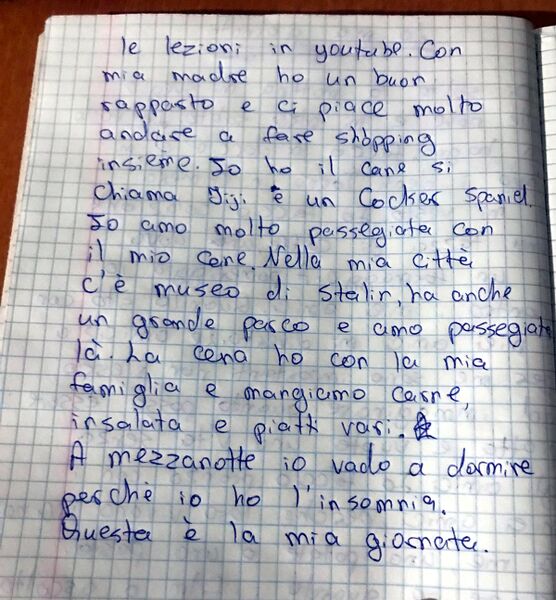 le lezioni in youtube. Con
mia madre ho un buon
rapporto e ci piace molto
andare a fare shopping
insieme. Io ho il cane si
chiama Jiji è un Cocker Spaniel.
Io amo molto passegiate con
il mio cane. Nella mia città
c'è museo di Stalin, ha anche
un grande parco e amo passegiate
là. La cena ho con la mia
famiglia e mangiamo carne,
insalata e piatti vari.
A mezzanotte io vado a dormire
perchè io ho l'insomnia.
Questa è la mia giornata.